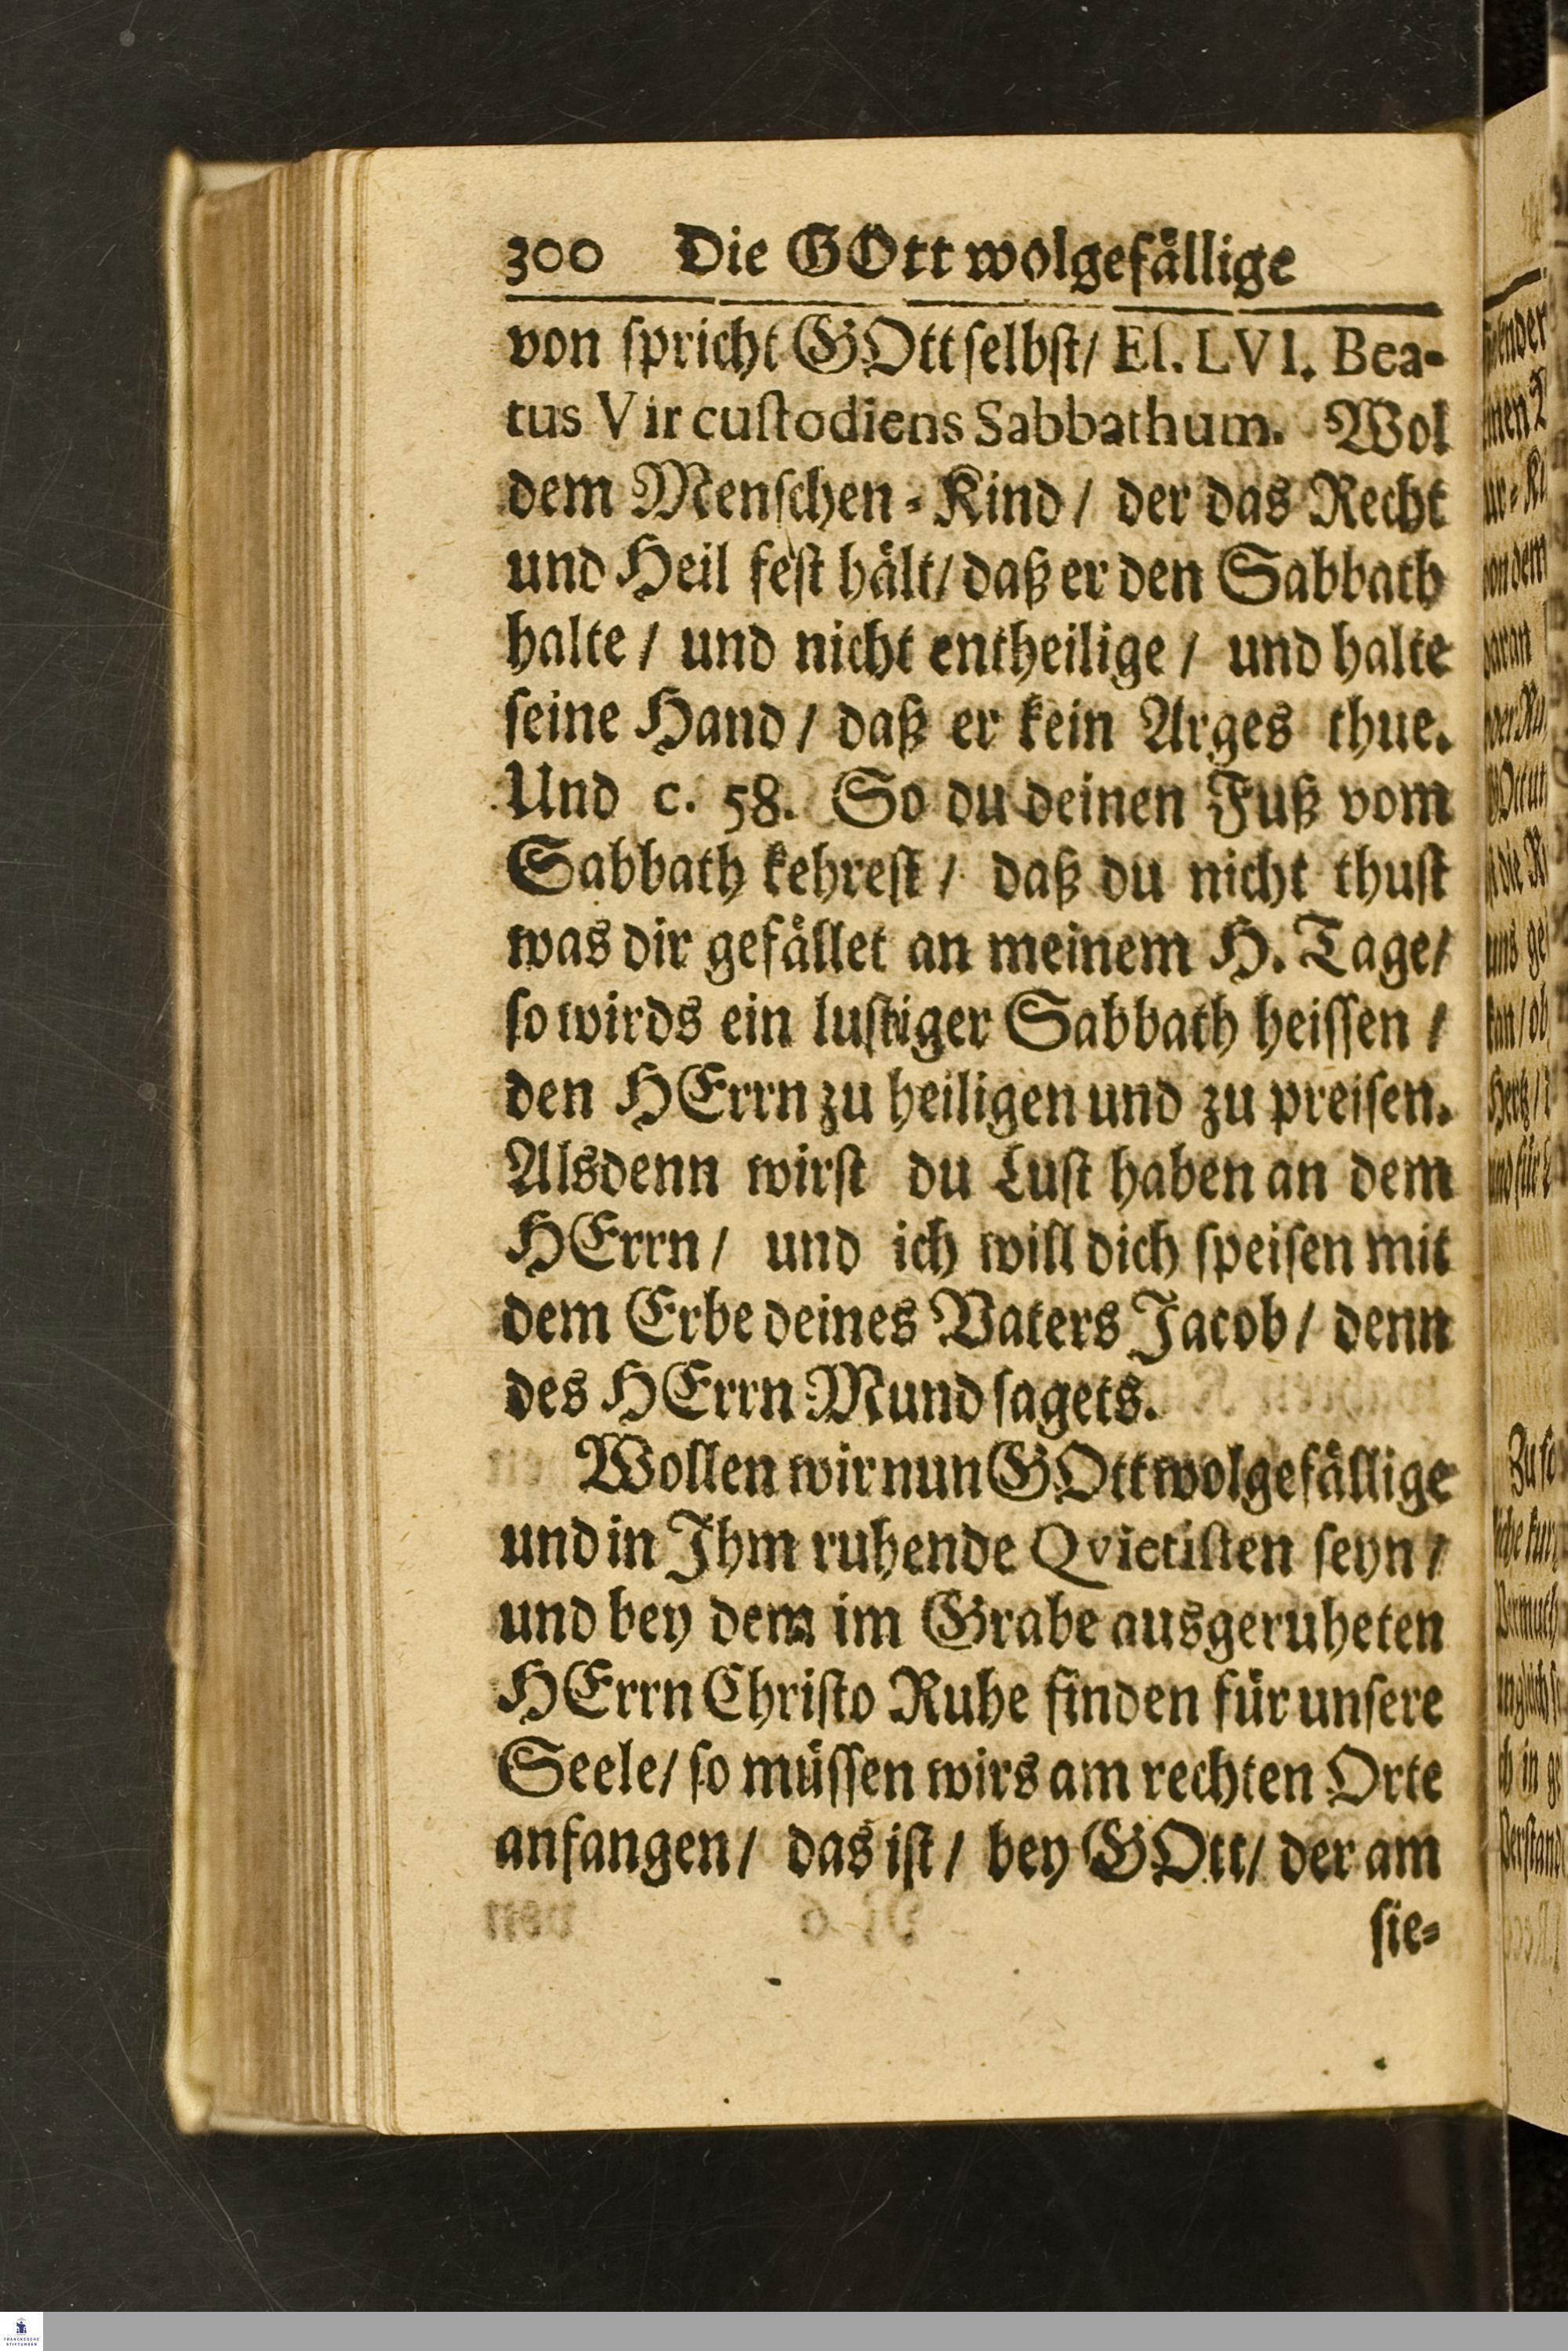 300 Die GOtt wolgefällige
von spricht GOtt selbst/ Es. LVI. Bea-
tus Vir custodiens Sabbathum. Wol
dem Menschen-Kind/ der das Recht
und Heil fest hält/ daß er den Sabbath
halte/ und nicht entheilige/ und halte
seine Hand/ daß er kein Arges thue.
Und c. 58. So du deinen Fuß vom
Sabbath kehrest/ daß du nicht thust
was dir gefället an meinem H. Tage/
so wirds ein lustiger Sabbath heissen/
den HErrn zu heiligen und zu preisen.
Alsdenn wirst du Lust haben an dem
HErrn/ und ich will dich speisen mit
dem Erbe deines Vaters Jacob/ denn
des HErrn Mund sagets.
Wollen wir nun GOtt wolgefällige
und in Ihm ruhende Qvietisten seyn/
und bey dem im Grabe ausgeruheten
HErrn Christo Ruhe finden für unsere
Seele/ so müssen wirs am rechten Orte
anfangen/ das ist/ bey GOtt/ der am
sie-
FRANCKESCHE
STIFTUNGEN